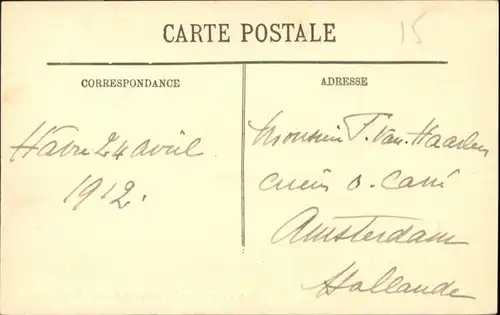 CARTE POSTALE
15
CORRESPONDANCE
ADRESSE
Havre 24 avril
1912.
Monsieur T. Van. Haarlem
Amsterdam
Hollande